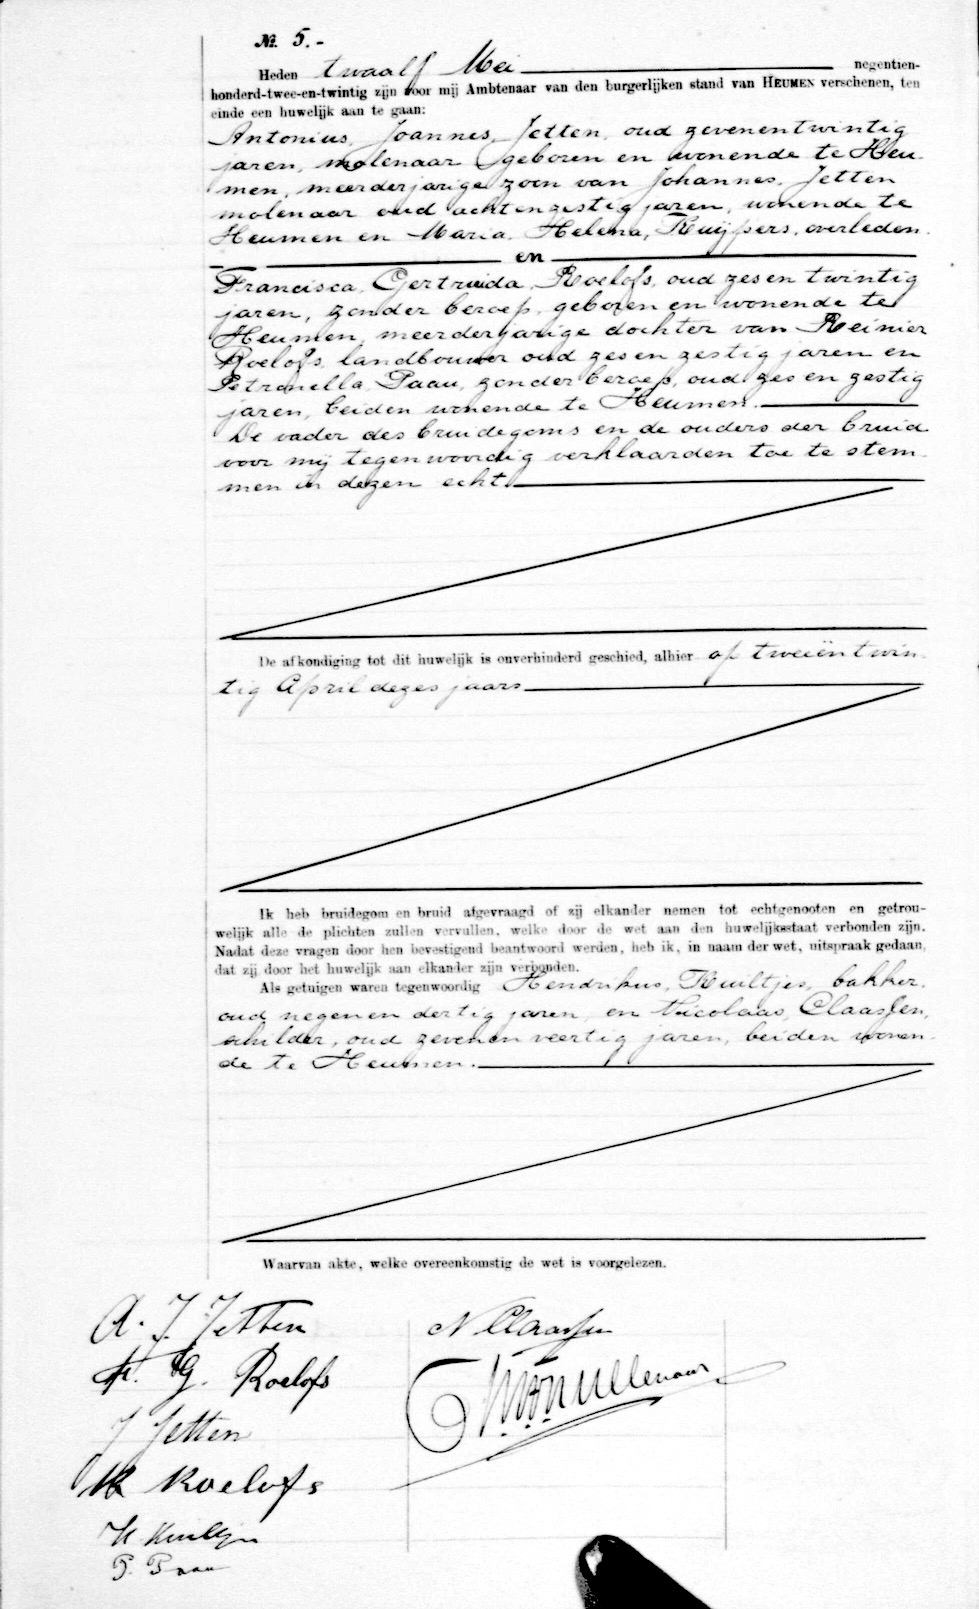 №. 5.-
Heden twaalf Mei negentien-
honderd-twee-en-twintig zijn voor mij Ambtenaar van den burgerlijken stand van HEUMEN verschenen, ten
einde een huwelijk aan te gaan:
Antonius, Joannes, Jetten, oud zevenentwintig
jaren, molenaar geboren en wonende te Heu-
men, meerderjarige zoon van Johannes, Jetten
molenaar oud achtenzestig jaren, wonende te
Heumen en Maria, Helena, Kuijpers, overleden.
en
Francisca, Gertruida, Roelofs, oud zesentwintig
jaren, zonder beroep, geboren en wonende te
Heumen, meerderjarige dochter van Reinier
Roelofs, landbouwer oud zesenzestig jaren en
Petronella, Paau, zonder beroep, oud zesenzestig
jaren, beiden wonende te Heumen.
De vader des bruidegoms en de ouders der bruid
voor mij tegenwoordig verklaarden toe te stem-
men in dezen echt.
De afkondiging tot dit huwelijk is onverhinderd geschied, alhier op tweeëntwin-
tig April dezes jaars
Ik heb bruidegom en bruid afgevraagd of zij elkander nemen tot echtgenooten en getrou-
welijk alle de plichten zullen vervullen, welke door de wet aan den huwelijksstaat verbonden zijn.
Nadat deze vragen door hen bevestigend beantwoord werden, heb ik, in naam der wet, uitspraak gedaan,
dat zij door het huwelijk aan elkander zijn verbonden.
Als getuigen waren tegenwoordig Hendrikus, Kuiltjes, bakker,
oud negenendertig jaren, en Nicolaas, Claassen,
schilder, oud zevenenveertig jaren, beiden wonen-
de te Heumen.
Waarvan akte, welke overeenkomstig de wet is voorgelezen.
A. J. Jetten
N Claassen
Fr. G. Roelofs
J Jetten
R Roelofs
H Kuiltjes
P. Paau